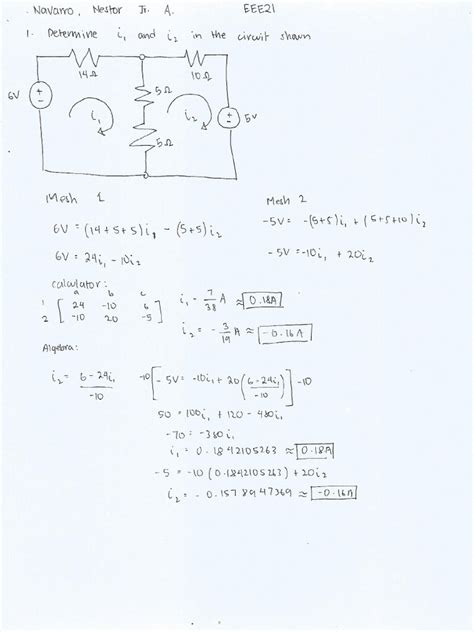 Navarro, Nestor Jr. A. EEE21
1. Determine i₁ and i₂ in the circuit shown
14Ω 10Ω
6V + - i₁ 5Ω i₂ + - 5V
5Ω
Mesh 1
6V = (14+5+5)i₁ - (5+5)i₂
6V = 24i₁ - 10i₂
Mesh 2
-5V = -(5+5)i₁ + (5+5+10)i₂
-5V = -10i₁ + 20i₂
calculator:
a b c
1 [ 24 -10 6
2 -10 20 -5 ]
i₁ - 7/38 A ≈ 0.18A
i₂ = - 3/19 A ≈ -0.16A
Algebra:
i₂ = 6-24i₁/-10
-10[-5V = -10i₁ + 20(6-24i₁/-10)]-10
50 = 100i₁ + 120 - 480i₁
-70 = -380i₁
i₁ = 0.1842105263 ≈ 0.18A
-5 = -10(0.1842105263) + 20i₂
i₂ = -0.1578947369 ≈ -0.16A